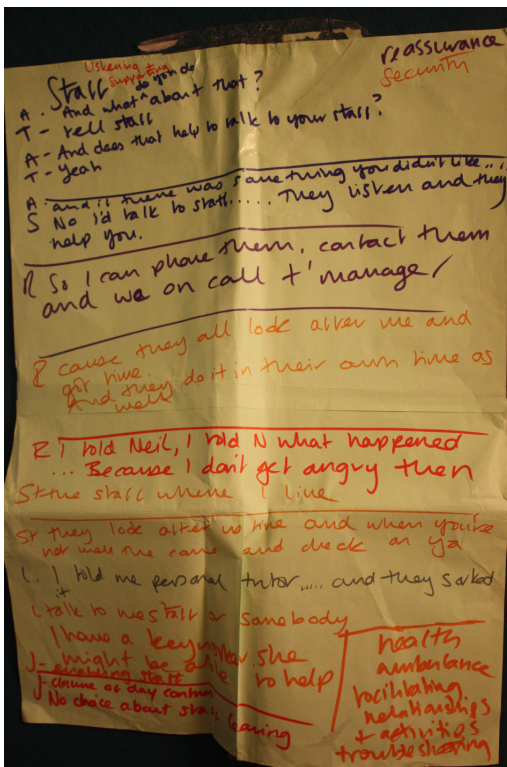 Listening
Supporting
reassurance
security
Staff do you do
A - And what ^ about that?
T - Tell staff
A - And does that help to talk to your staff?
T - Yeah
A - and if there was something you didn't like....
S No I'd talk to staff..... They listen and they
help you.
R So I can phone them, contact them
and we on call t' manager
R cause they all look after me and
got time.
And they do it in their own time as
well
R I told Neil, I told N what happened
... Because I don't get angry then
St the staff where I live
St they look after us fine and when you're
not well the come and check on ya
L. I told me personal tutor..... and they sorted
it
L talk to me staff or somebody
I have a keyworker she
might be able to help
J - enabling staff
J - choice of day centre
No choice about staff leaving
health
ambulance
facilitating
relationships
+ activities
troubleshooting